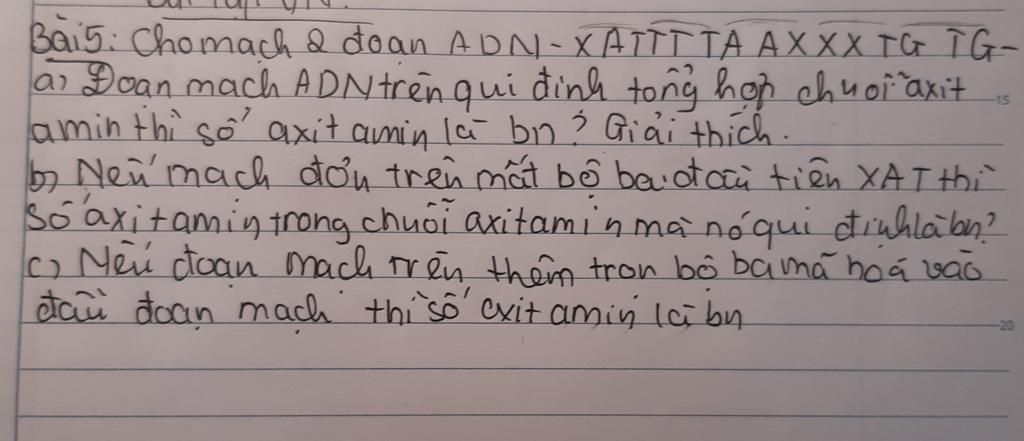 Bài 5: Cho mạch 2 đoạn ADN - XATTTTAAXXXTGTTG-
a) Đoạn mạch ADN trên qui định tổng hợp chuỗi axit
amin thì số axit amin là bn? Giải thích.
b) Nếu mạch đơn trên mất bộ ba đầu tiên XAT thì
số axit amin trong chuỗi axit amin mà nó qui định là bn?
c) Nếu đoạn mạch trên thêm tron bộ ba mã hoá vào
đầu đoạn mạch thì số axit amin là bn
15
20